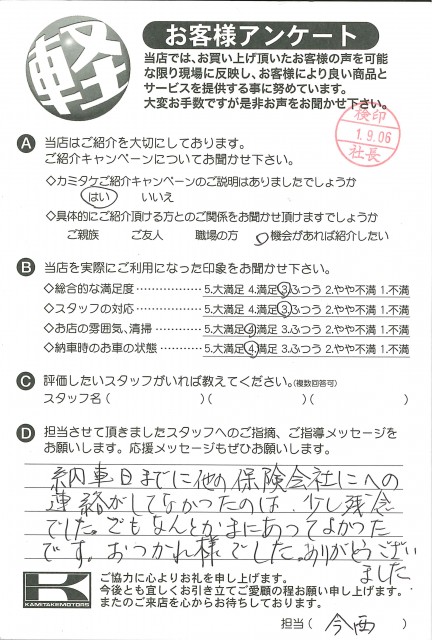 軽
お客様アンケート
当店では、お買い上げ頂いたお客様の声を可能
な限り現場に反映し、お客様により良い商品と
サービスを提供する事に努めています。
大変お手数ですが是非お声をお聞かせ下さい。
検印
1.9.06
社長
A 当店はご紹介を大切にしております。
ご紹介キャンペーンについてお聞かせ下さい。
◇カミタケご紹介キャンペーンのご説明はありましたでしょうか
はい いいえ
◇具体的にご紹介頂ける方とのご関係をお聞かせ頂けますでしょうか
ご親族 ご友人 職場の方 機会があれば紹介したい
B 当店を実際にご利用になった印象をお聞かせ下さい。
◇総合的な満足度 …………… 5.大満足 4.満足 3.ふつう 2.やや不満 1.不満
◇スタッフの対応 …………… 5.大満足 4.満足 3.ふつう 2.やや不満 1.不満
◇お店の雰囲気、清掃 ……… 5.大満足 4.満足 3.ふつう 2.やや不満 1.不満
◇納車時のお車の状態 ……… 5.大満足 4.満足 3.ふつう 2.やや不満 1.不満
C 評価したいスタッフがいれば教えてください。(複数回答可)
スタッフ名 ( )( )( )
D 担当させて頂きましたスタッフへのご指摘、ご指導メッセージを
お願いします。応援メッセージもぜひお願いします。
納車日までに他の保険会社にへの
連絡がしてなかったのは、少し残念
でした。でもなんとかまにあってよかった
です。おつかれ様でした。ありがとうござい
ました
K
KAMITAKE MOTORS
ご協力に心よりお礼を申し上げます。
今後とも宜しくお引き立てご愛顧の程お願い申し上げます。
またのご来店を心からお待ちしております。
担当 ( 今西 )